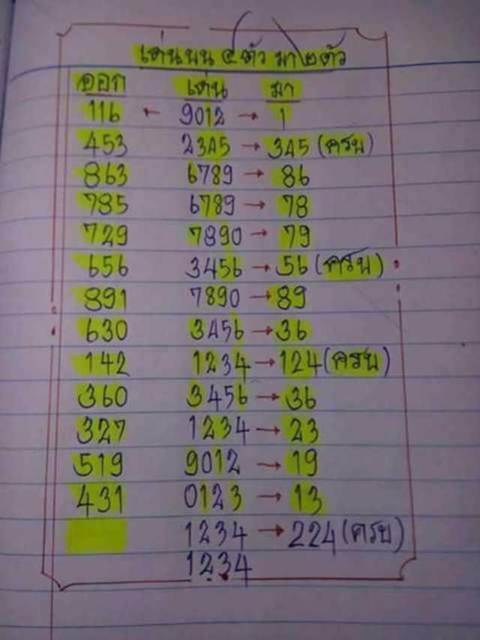 เด่นบน ๔ ตัว มา ๒ ตัว
ออก เด่น มา
116 ← 9012 → 1
453 2345 → 345 (ครบ)
863 6789 → 86
785 6789 → 78
729 7890 → 79
656 3456 → 56 (ครบ)
891 7890 → 89
630 3456 → 36
142 1234 → 124 (ครบ)
360 3456 → 36
327 1234 → 23
519 9012 → 19
431 0123 → 13
1234 → 224 (ครบ)
1234